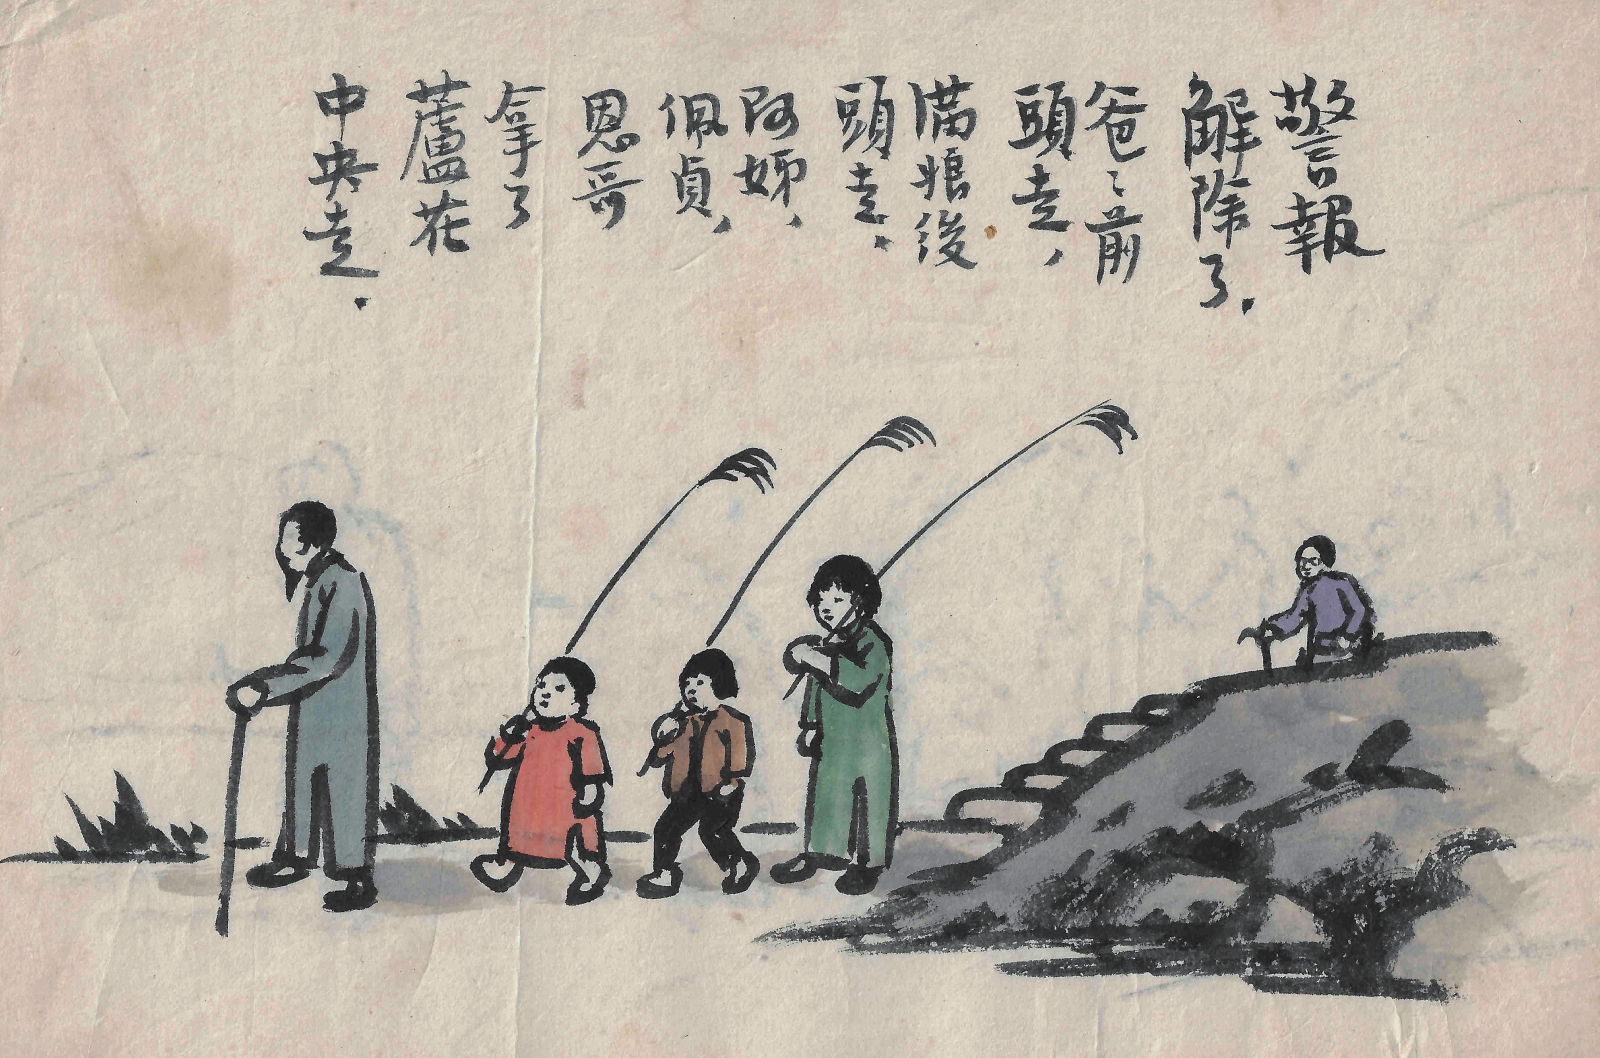 警報
解除了.
爸〻前
頭走,
滿娘後
頭走.
阿姊,
佩貞,
恩哥
拿了
蘆花
中央走.